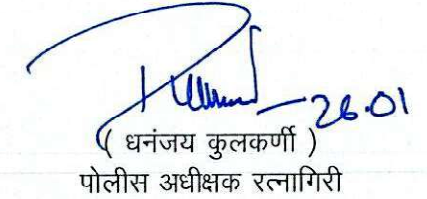 26.01
( धनंजय कुलकर्णी )
पोलीस अधीक्षक रत्नागिरी